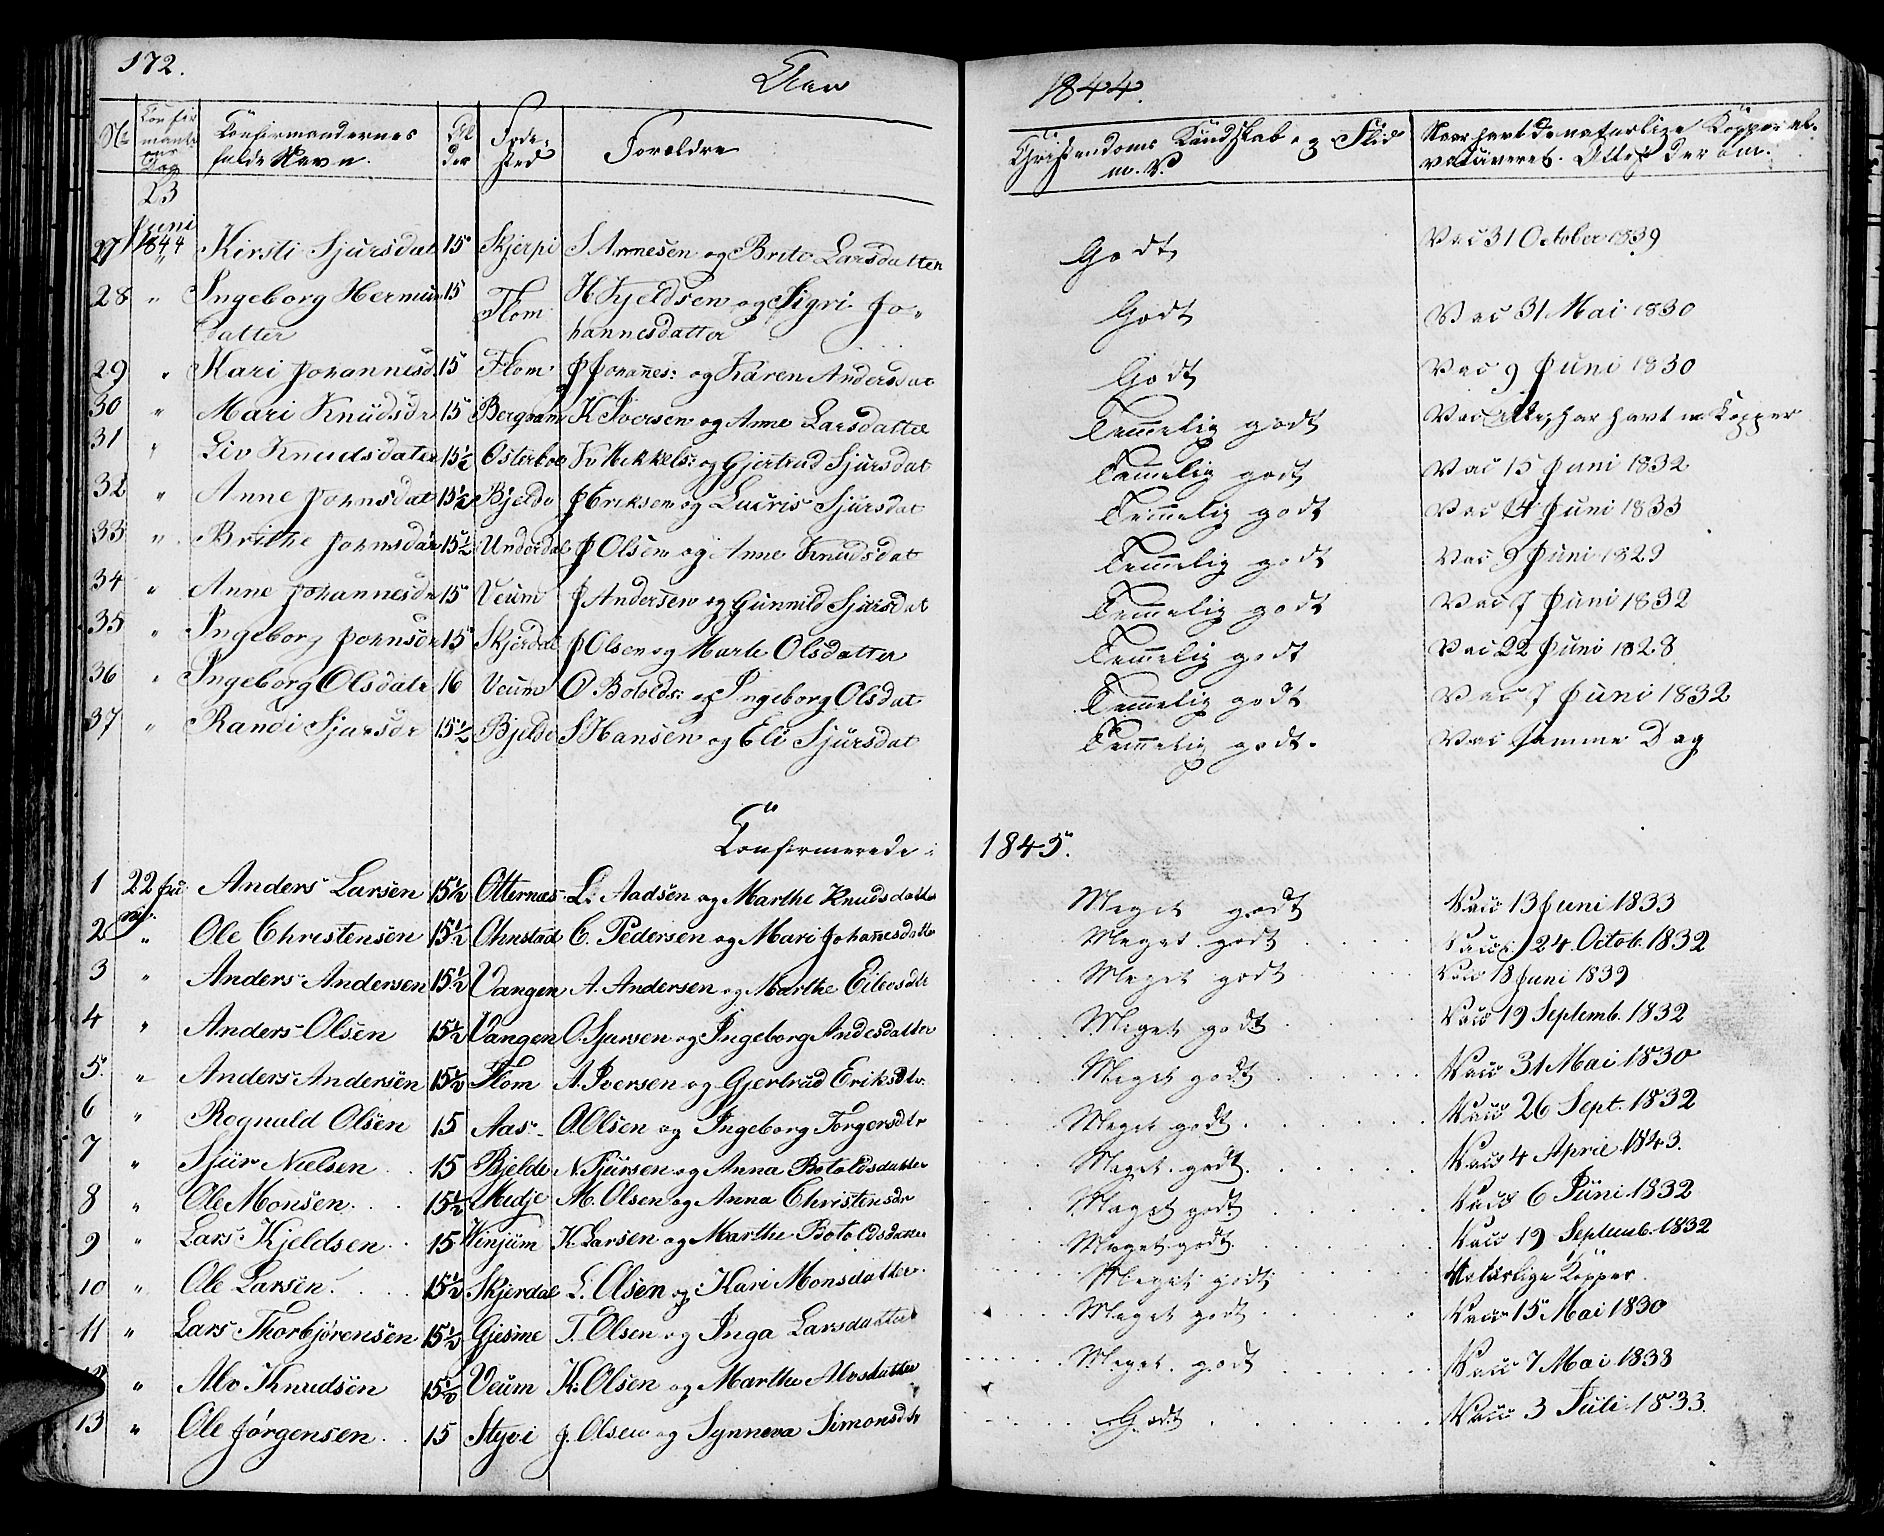 172.
Aar
1844.
No
Confir
mante
Dag
Confirmandernes
fulde Navn.
Al
der
Føde-
sted
Forældre
Christendoms Kundskab og Flid
m. V.
Naar havt de naturlige Kopper el.
vaccineret. Attest derom.
23
Juni
27 1844 Kirsti Sjursdat 15 Skjerpi S Arnesen og Brite Larsdatter Godt Vac 31 October 1839
28 " Ingeborg Hermun 15 Flom H Kjeldsen og Sigri Jo-
datter hannesdatter Godt Vac 31 Mai 1830
29 " Kari Johannesd 15 Flom J Johanes: og Karen Andersdat Godt Vac 9 Juni 1830
30 " Mari Knudsdr 15 K Iversen og Anne Larsdatter Temmelig godt Vac ikke, har havt n Kopper
31 " Liv Knudsdater 15½ Østerboe K Mikkels: og Gjertrud Sjursdat Temmelig godt Vac 15 Juni 1832
32 " Anne Johnsdat 15½ Bjelde J Eriksen og Lucris Sjursdat Temmelig godt Vac 14 Juni 1833
33 " Brithe Johnsdat 15½ Underdal J Olsen og Anne Knudsdat Temmelig godt Vac 9 Juni 1829
34 " Anne Johannesdr 15 Veum J Andersen og Gunnild Sjursdat Temmelig godt Vac 7 Juni 1832
35 " Ingeborg Johnsdr 15 Skjerdal J Olsen og Marte Olsdatter Temmelig godt Vac 22 Juni 1828
36 " Ingeborg Olsdatr 16 Veum O Botolds: og Ingeborg Olsdat Temmelig godt Vac 7 Juni 1832
37 " Randi Sjursdr 15½ Bjelde S Hansen og Eli Sjursdat Temmelig godt. Vac samme Dag
Confirmerede i 1845.
1 22 Ju Anders Larsen 15½ Otternæs L. Aadsen og Marthe Knudsdatter Meget godt Vacc 13 Juni 1833
2 " Ole Christensen 15½ Ohnstad C. Pedersen og Mari Johanesdatter Meget godt Vacc 24 Octob. 1832
3 " Anders Andersen 15½ Vangen A. Andersen og Marthe Eilevsdtr Meget godt Vac 18 Juni 1839
4 " Anders Olsen 15½ Vangen O. Sjursen og Ingeborg Andersdatter Meget godt Vacc 19 Septemb. 1832
5. " Anders Andersen 15½ Flom A. Iversen og Gjertrud Eriksdtr. Meget godt Vacc 31 Mai 1830
6 " Rognald Olsen 15 Aas O. Olsen og Ingeborg Torgersdtr Meget godt Vacc 26 Sept. 1832
7 " Sjur Nielsen 15 Bjelde N. Sjursen og Anna Botoldsdatter Meget godt Vacc 4 April 1843.
8 " Ole Monsen 15½ Midje M. Olsen og Anna Christensdr Meget godt Vacc 6 Juni 1832
9 " Lars Kjeldsen 15 Vinjum K. Larsen og Marthe Botoldsdatter Meget godt Vacc 19 Septemb. 1832
10 " Ole Larsen 15½ Skjerdal L. Olsen og Kari Monsdatter Meget godt Naturlige Kopper
11 " Lars Thorbjørensen 15½ Gjesme T. Olsen og Inga Larsdatter Meget godt Vacc 15 Mai 1830
12 " Alv Knudsen 15½ Veum K. Olsen og Marthe Alvsdatter Meget godt Vacc 7 Mai 1833
13 " Ole Jørgensen 15 Styvi J. Olsen og Synneva Simonsdtr Godt Vacc 3 Juli 1833